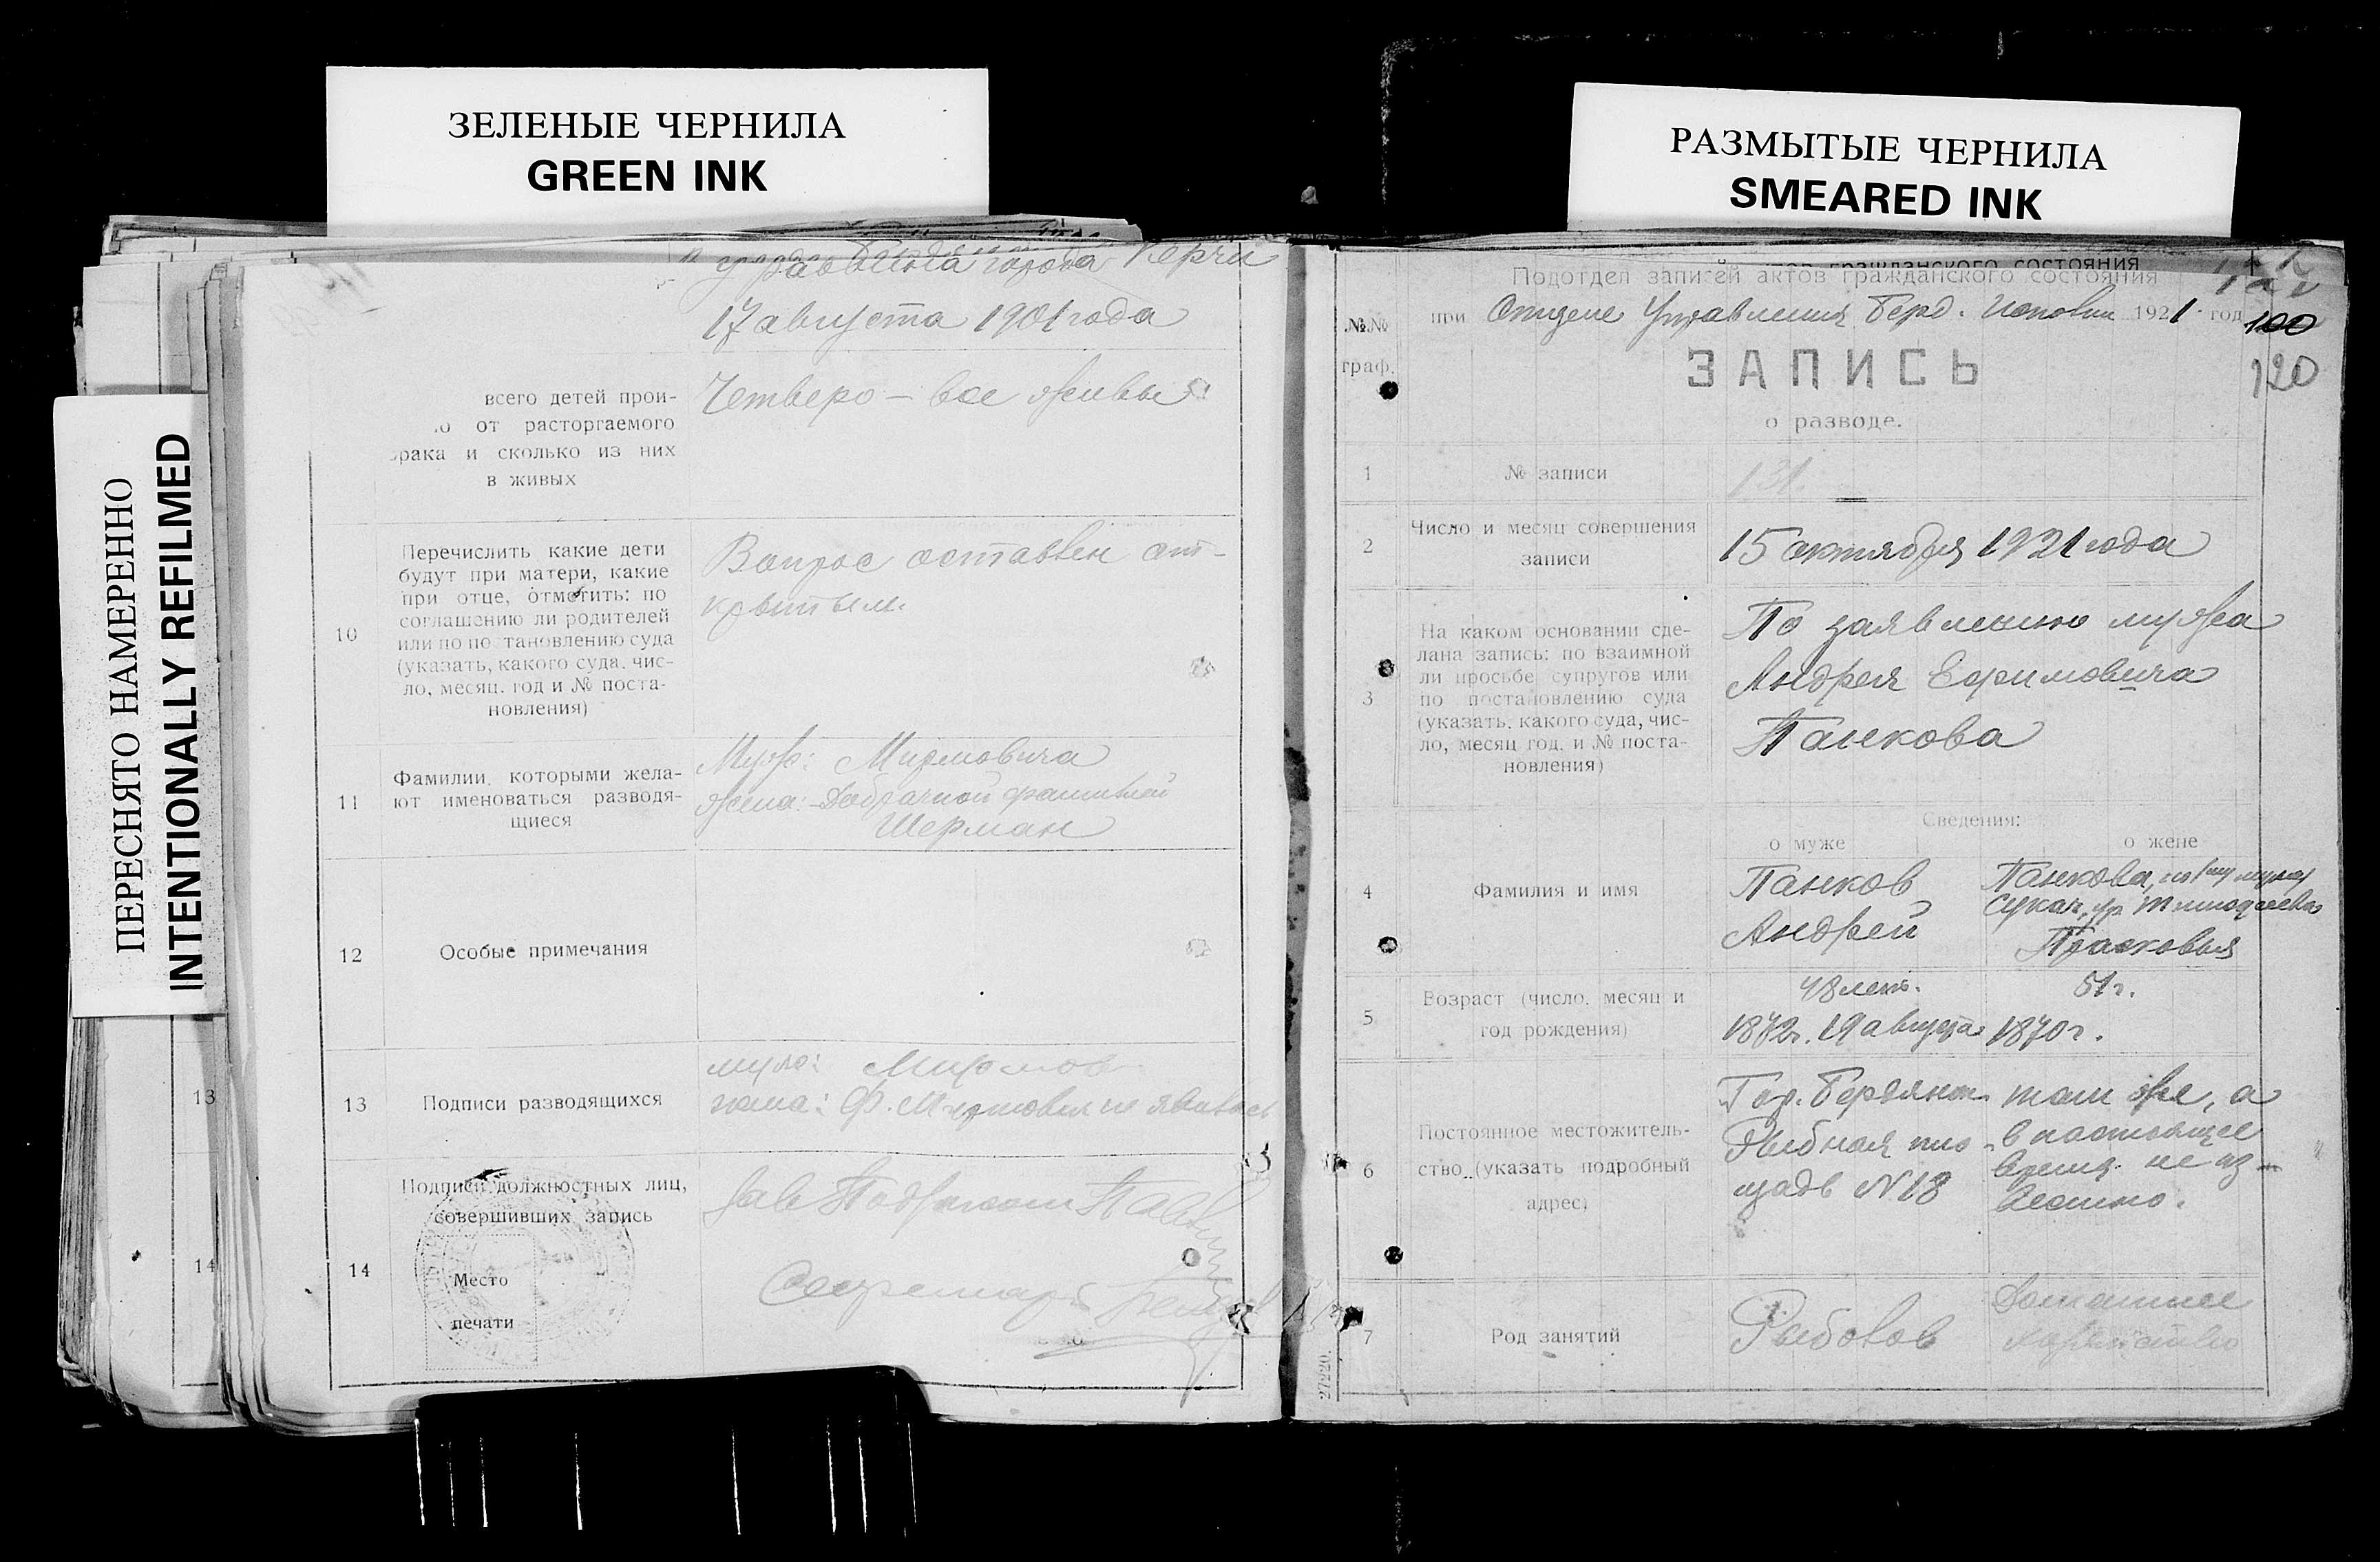 ЗЕЛЕНЫЕ ЧЕРНИЛА
GREEN INK
РАЗМЫТЫЕ ЧЕРНИЛА
SMEARED INK
ПЕРЕСНЯТО НАМЕРЕННО
INTENTIONALLY REFILMED
раввина города Керчи
17 августа 1901 года
всего детей прои-
от расторгаемого
брака и сколько из них
в живых
Четверо – все живы
10
Перечислить какие дети
будут при матери, какие
при отце, отметить: по
соглашению ли родителей
или по по тановлению суда
(указать, какого суда, чис-
ло, месяц, год и № поста-
новления)
Вопрос оставлен от-
крытым.
11
Фамилии, которыми жела-
ют именоваться разводя-
щиеся
Муж:
жена: Добрачной фамилией
Шерман
12
Особые примечания
13
Подписи разводящихся
муж:
жена: Ф. не явилась
14
Подписи должностных лиц,
совершивших запись
Место
печати
Зав
Секретарь
13
14
Подотдел записей актов гражданского состояния
при Отделе Управления Берд. Исполкома 1921 год
100
120
№№
граф.
ЗАПИСЬ
о разводе.
1
№ записи
131.
2
Число и месяц совершения
записи
15 октября 1921 года
3
На каком основании сде-
лана запись: по взаимной
ли просьбе супругов или
по постановлению суда
(указать, какого суда, чис-
ло, месяц год, и № поста-
новления)
По заявлению мужа
Андрея Ефимовича
Панкова
Сведения:
о муже
о жене
4
Фамилия и имя
Панков
Андрей
Панкова, по 1му мужу
Прасковья
5
Возраст (число, месяц и
год рождения)
48 лет.
1872г. 19 августа
51 г.
1870 г.
6
Постоянное местожитель-
ство (указать подробный
адрес)
Гор. Бердянск
Рыбная пло-
щадь N 18
там же, а
в настоящее
время не из-
вестно.
7
Род занятий
Рыболов
Домашнее
хозяйство
27220.